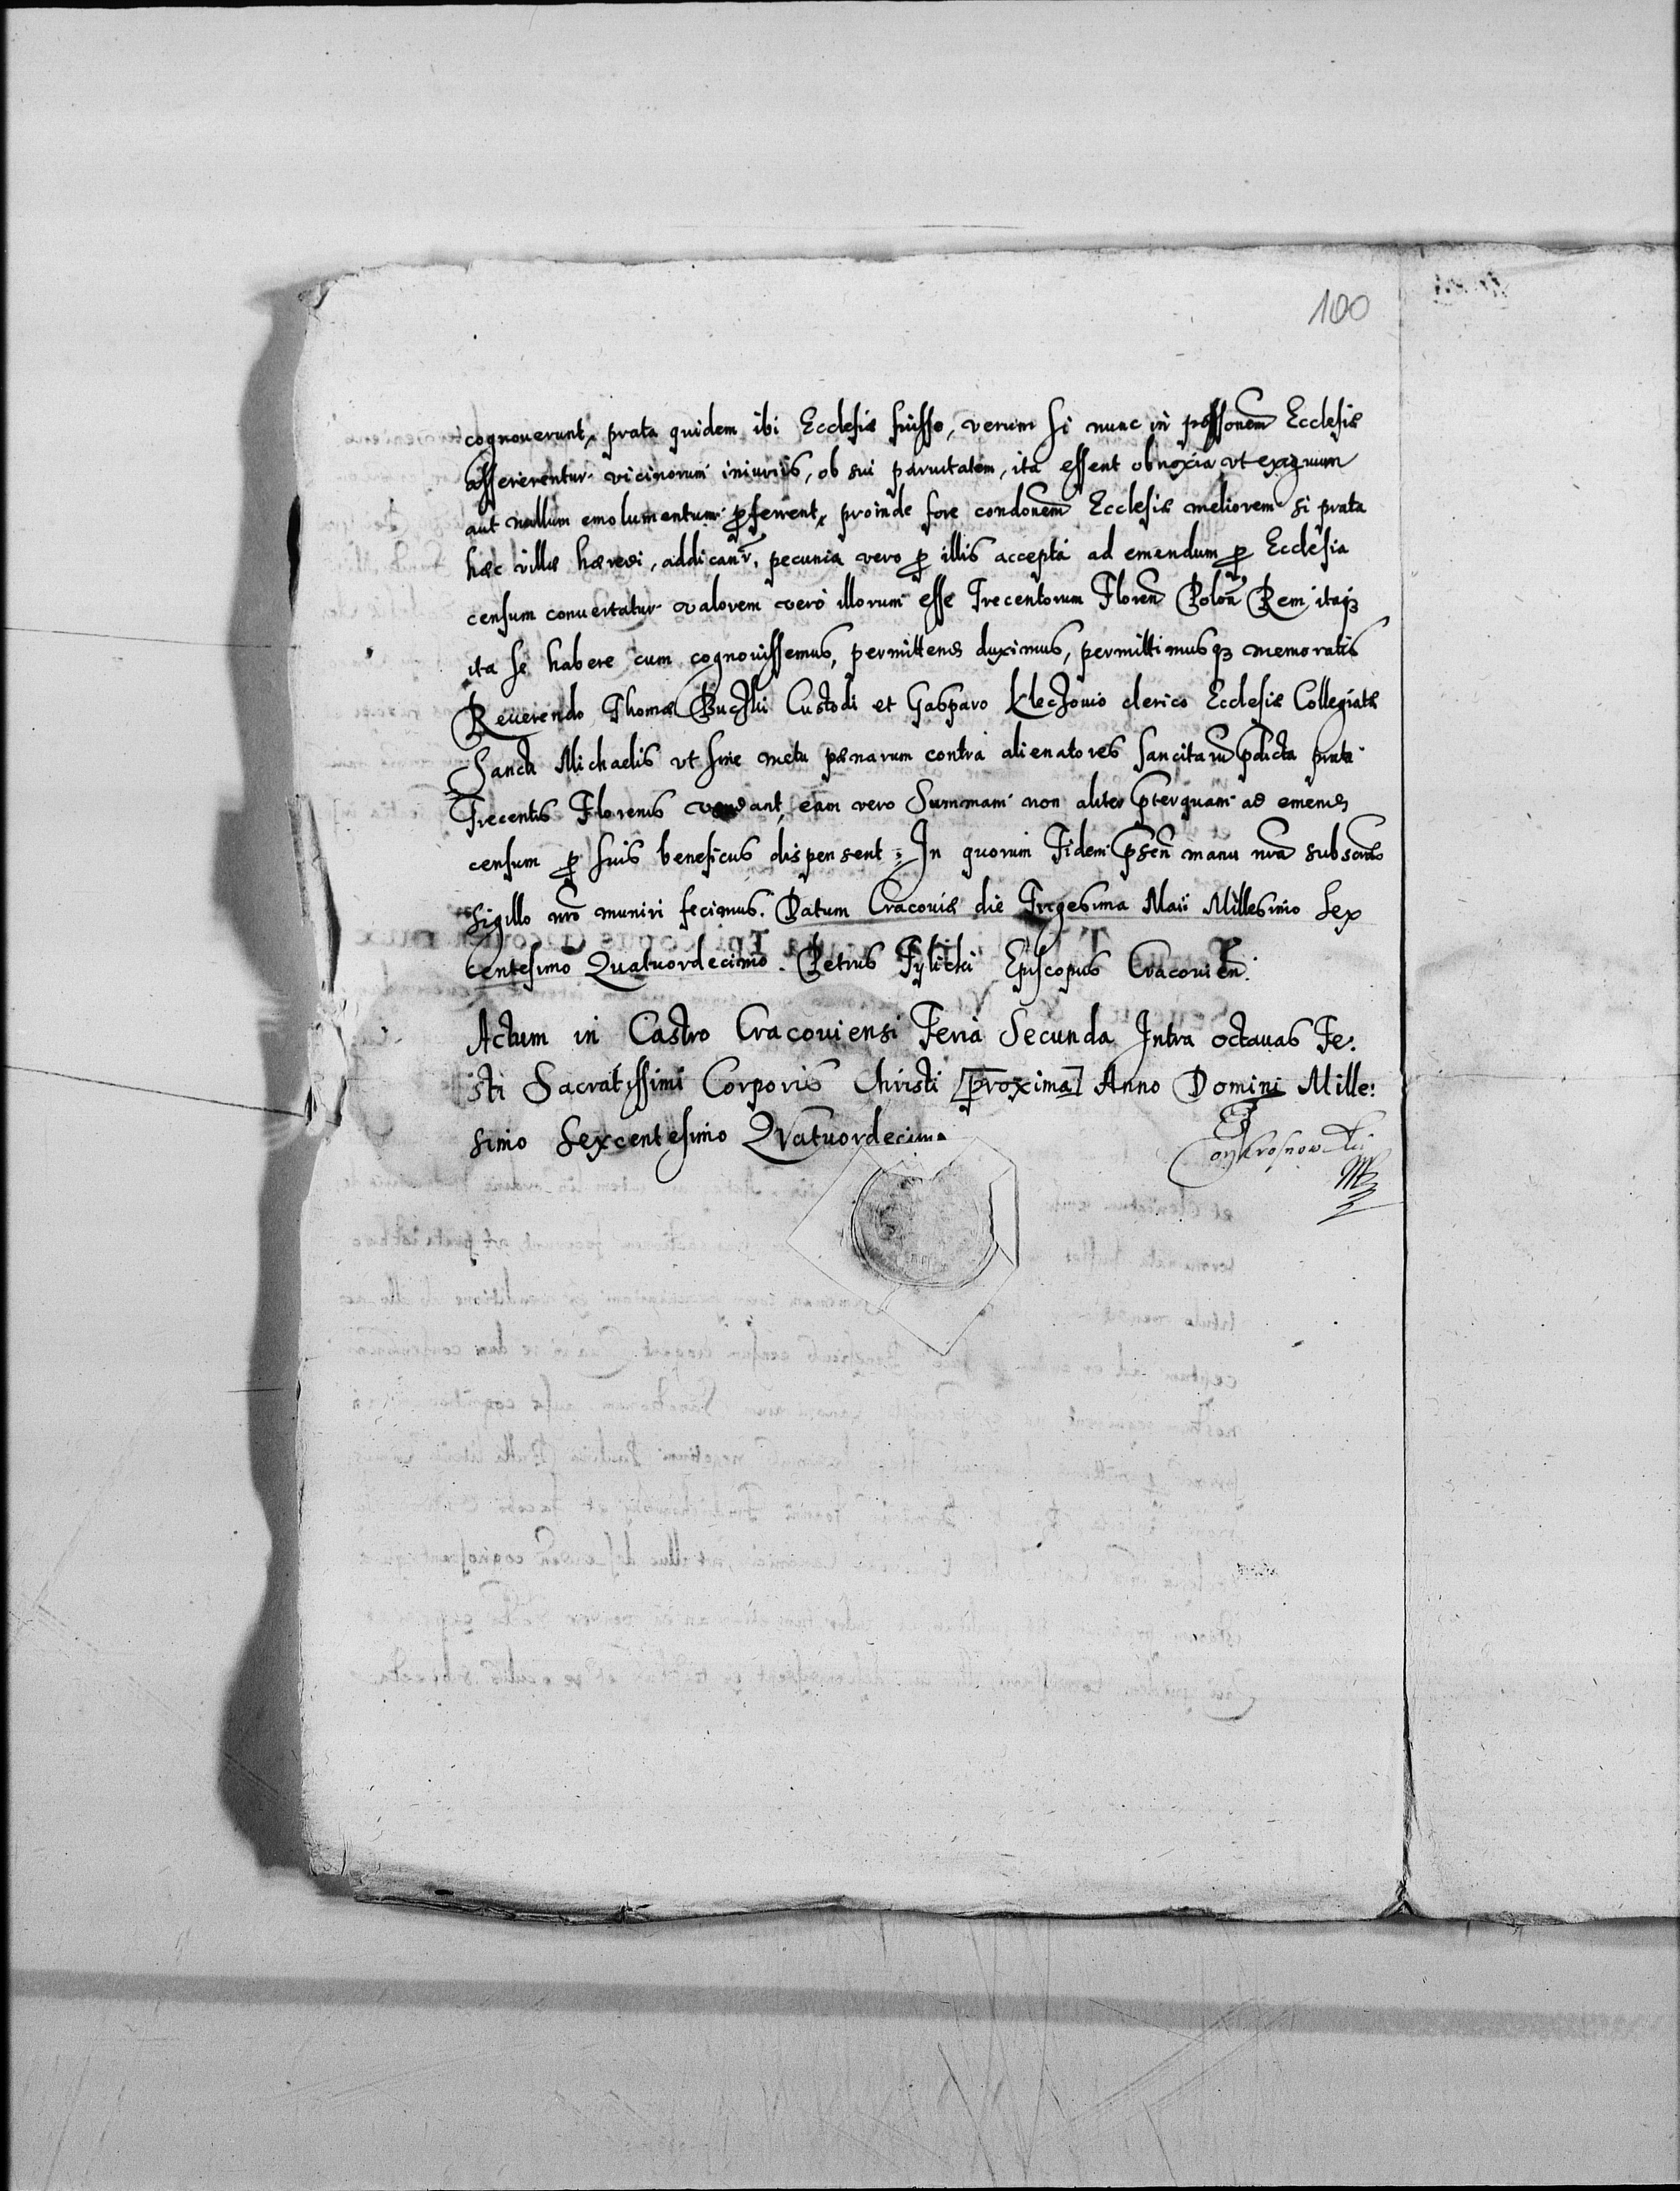 100
cognouerunt, prata quidem ibi Ecclesiæ fuisse, verum si nunc in possonem Ecclesiæ
assererentur vicinorum iniuriis, ob sui paruitatem, ita essent obnoxia vt exiguum
aut nullum emolumentum pferrent, proinde fore condonem Ecclesiæ meliorem si prata
hæc villæ hæredi, addicantr, pecunia vero p illis accepta ad emendum p Ecclesia
censum conuertatur valorem vero illorum esse Trecentorum Floren Polon Rem itaq
ita se habere cum cognouissemus, permittend duximus, permittimusq memoratis
Reuerendo Thomæ Custodi et Gasparo Klectouio clerico Ecclesiæ Collegiatæ
Sancti Michaelis vt sine metu pænarum contra alienatores sancitaru pdicta prata
Trecentis Florenis vendant, eam vero Summam non aliter pterquam ad emend
censum p suis beneficiis dispensent. In quorum Fidem psen manu nra subscrtas
sigillo nro muniri fecimus. Datum Cracouiæ die Trigesima Maii Millesimo Sex
centesimo Quatuordecimo. Petrus Tylicki Episcopus Cracouien.
Actum in Castro Cracouiensi Feria Secunda Intra octauas Fe:
sti Sacratissimi Corporis Christi [proxima] Anno Domini Mille:
simo Sexcentesimo Qvatuordecimo